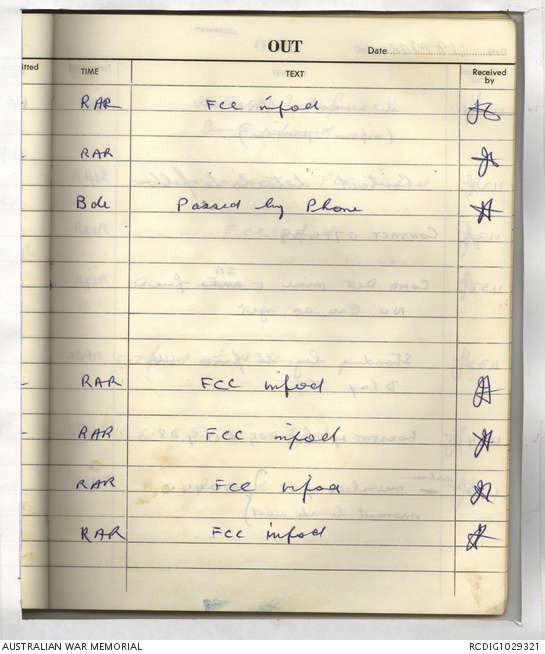 OUT
Date
itted TIME TEXT Received by
RAR FCC infod
RAR
Bde Passed by Phone
RAR FCC infod
RAR FCC infod
RAR FCC infod
RAR FCC infod
AUSTRALIAN WAR MEMORIAL RCDIG1029321